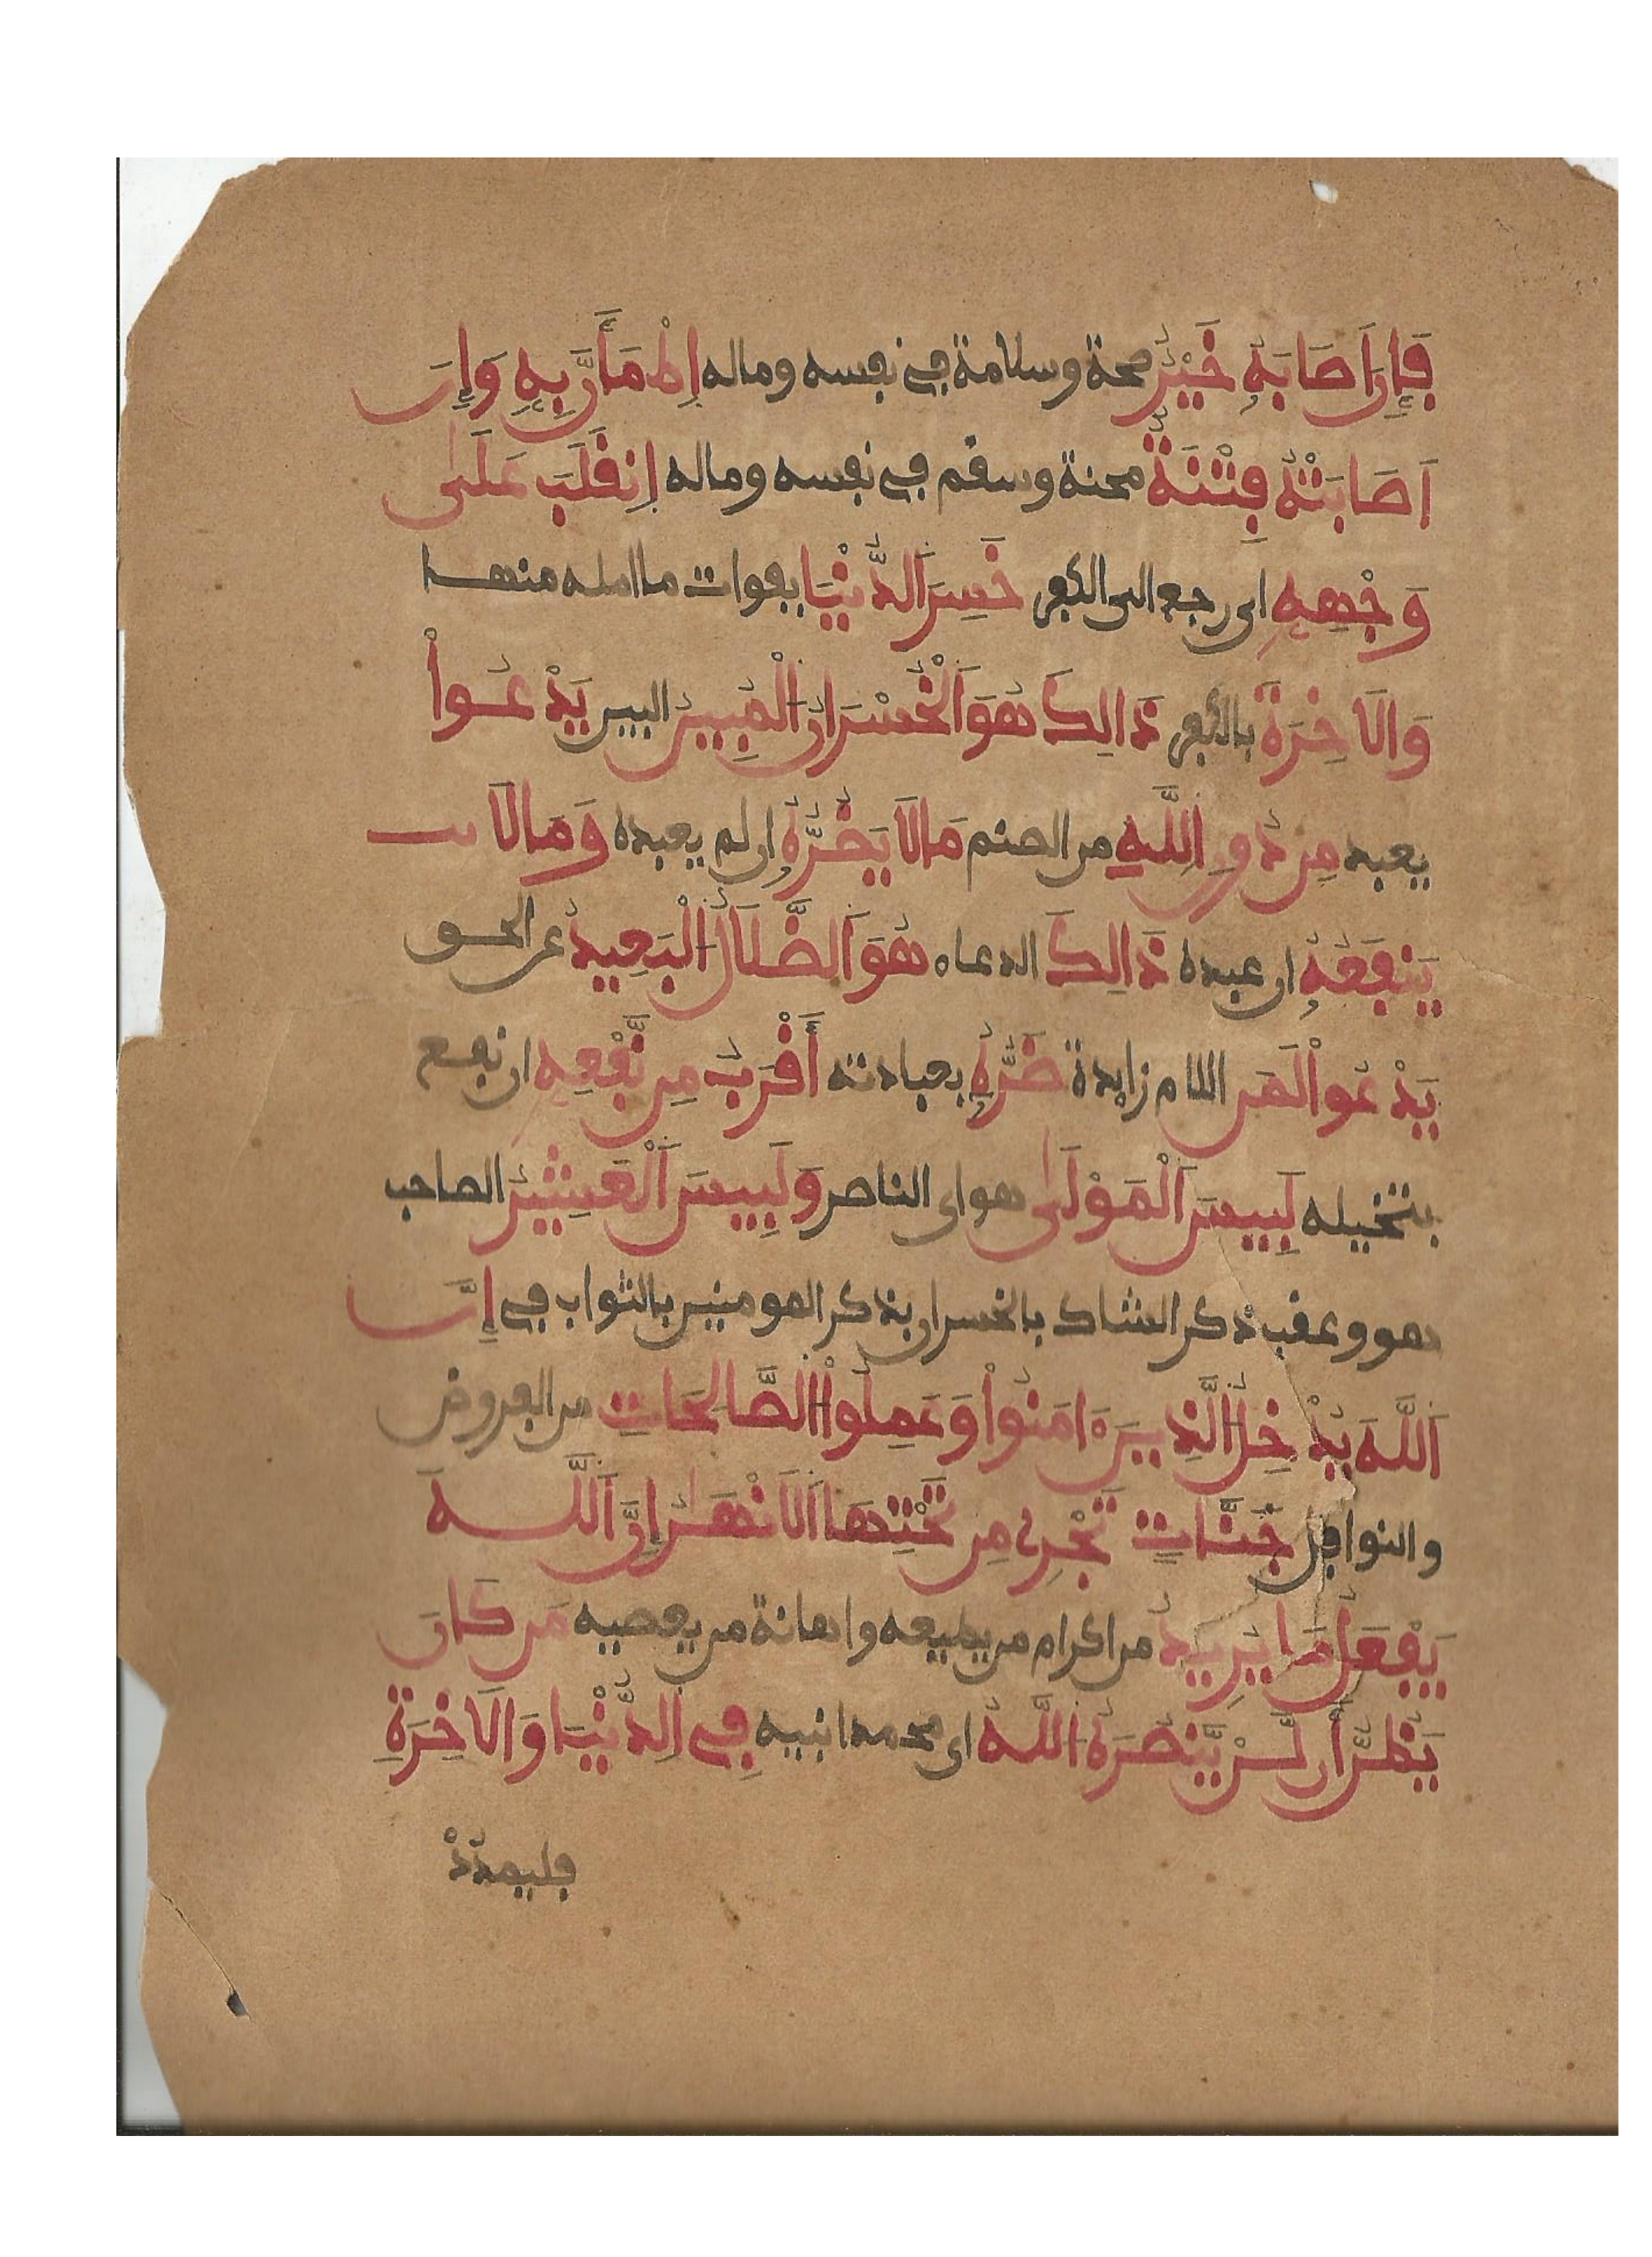 فَإِنَ اَصَابَهُۥ خَيْرٌ صحة وسلامة في نفسه وماله اِطْمَأَنَّ بِهِۦ وَإِنَ
اَصَابَتْهُ فِتْنَةٌ محنة وسقم في نفسه وماله اِنقَلَبَ عَلَىٰ
وَجْهِهِۦ اى رجع الى الكفر خَسِرَ اَلدُّنْيَا بفوات ما امله منها
وَالَاخِرَةَ بالكفر ذَالِكَ هُوَ اَلْخُسْرَانُ اُلْمُبِينُ البين يَدْعُواْ
يعبد مِن دُونِ اِللَّهِ من الصنم مَالَا يَضُرُّهُۥ ان لم يعبده وَمَالَا
يَنفَعُهُۥ ان عبده ذَالِكَ الدعاء هُوَ اَلضَّلَالُ اُلْبَعِيدُ عن الحق
يَدْعُواْ لَمَن اللام زايدة ضَرُّهُۥ بعبادته أَقْرَبُ مِن نَّفْعِهِۦ ان نفع
بتخيله لَبِيسَ اَلْمَوْلَىٰ هو اى الناصر وَلَبِيسَ اَلْعَشِيرُ الصاحب
هو وعقب ذكر الشاك بالخسران بذكر المومنين بالثواب في إِنَّ
اَللَّهَ يُدْخِلُ اُلذِينَ ءَامَنُواْ وَعَمِلُواْ اُلصَّالِحَاتِ من الفروض
والنوافل جَنَّاتٍ تَجْرِے مِن تَحْتِهَا اَلَانْهَٰرُ إِنَّ اَللَّهَ
يَفْعَلُ مَا يُرِيدُ من اكرام من يطيعه واهانة من يعصيه مَن كَانَ
يَظُنُّ أَن لَّنْ يَّنصُرَهُ اُللَّهُ اى محمدا نبيه فِے اِلدُّنْيَا وَالَاخِرَةِ
فليمدد